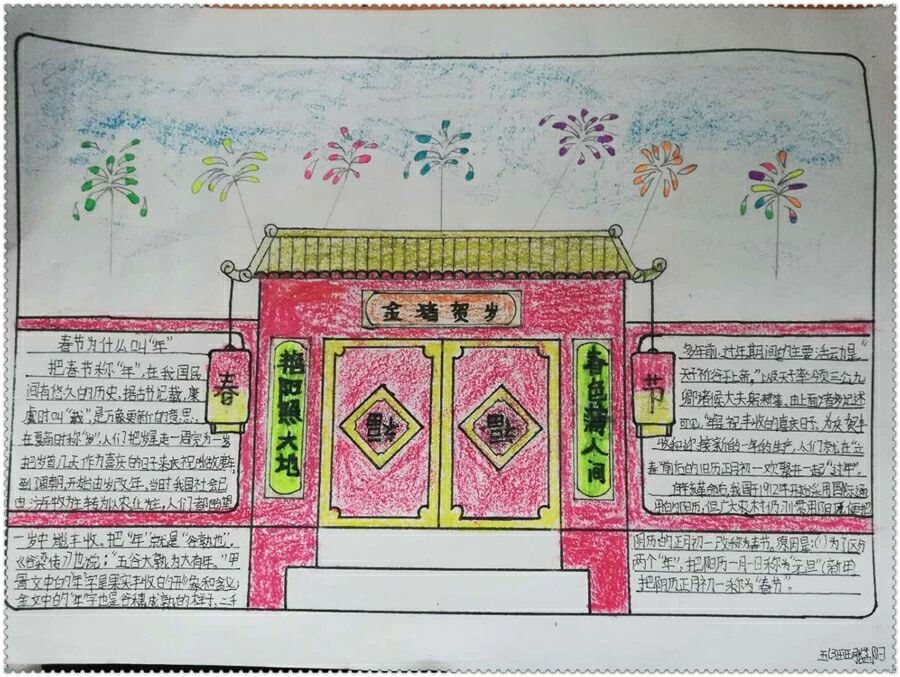 金猪贺岁
艳阳照大地
春色满人间
福
福
春
节
春节为什么叫“年”
把春节称“年”，在我国民
间有悠久的历史，据古书记载，唐
虞时叫“载”，是万像更新的意思，
在夏商时称“岁”，人们把岁星走一周完为一岁
把岁首几天作为喜庆的日子来庆祝叫做岁
到周朝开始由岁改年，当时我国社会已
由 转为以农业为主，人们都盼望
一岁中 丰收，把“年”就是“谷熟也”，
《谷梁传》也说：“五谷大熟为大有年。”甲
骨文中的“年”字是果实丰收的 象和含义
金文中的“年”字也是谷穗成熟的样子，二千
多年前，过年期间的主要活动是“
天子祈谷于上帝，” 天子率领三公九
卿诸侯大夫躬耕 ，由上面 记述
可见，“年”是祝丰收的喜庆日子，为
接 新的一年的生产，人们常也在“立
春”前后的旧历正月初一欢聚在一起“过年”，
革命后，我国于1912年开始采用国际通
用的阳历，但广大农村仍习惯用阴历，便把
阴历的正月初一改称为春节，原因是：(一)为了区分
两个“年”，把阳历一月一日称为“元旦”（新旧
把阴历正月初一称为“春节”。